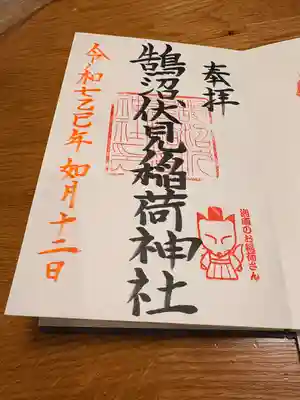 奉拝
鵠沼伏見稲荷神社
令和七乙巳年 如月十二日
湘南のお稲荷さん